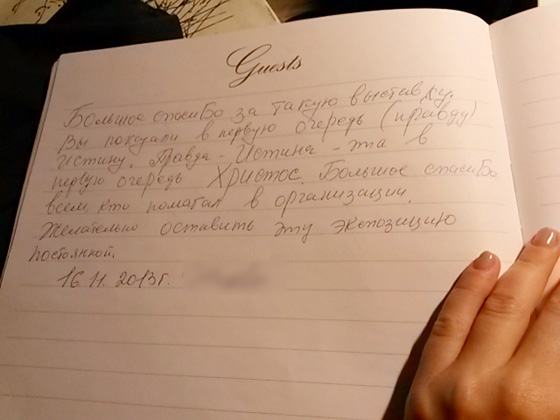 Guests
Большое спасибо за такую выставку.
Вы показали в первую очередь (правду)
Истину. Правда - Истина - эта в
первую очередь Христос. Большое спасибо
всем, кто помагал в организации.
Желательно оставить эту экспозицию
постоянной.
16.11.2013г.